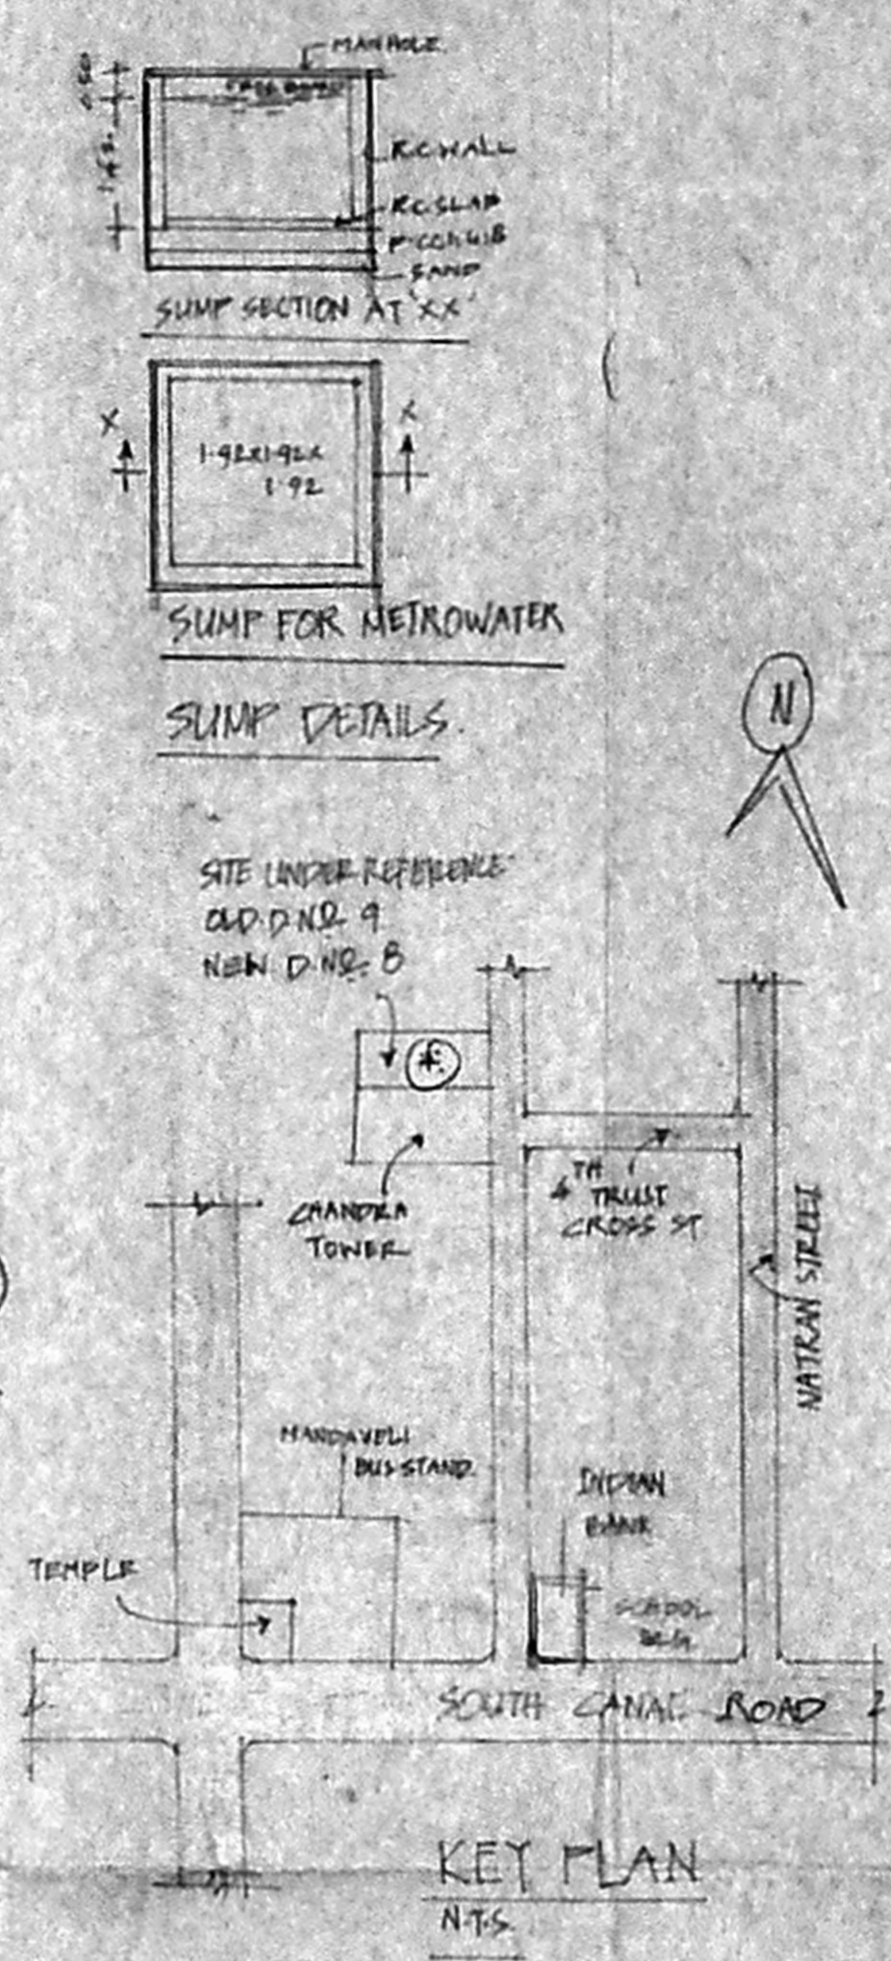 MANHOLE.
FREE BOARD
R.C.WALL
R.C.SLAB
P.CC1:4:8
SAND
SUMP SECTION AT 'XX'
X
X
1.92X1.92X
1.92
SUMP FOR METROWATER
SUMP DETAILS.
N
SITE UNDER REFERENCE
OLD.D.NO. 9
NEW D.NO. 8
CHANDRA
TOWER
TH
TRUST
CROSS ST
NATRAN STREET
MANDAVELI
BUS STAND.
INDIAN
BANK
TEMPLE
SCHOOL
BLG
SOUTH CANAL ROAD
KEY PLAN
N.T.S.